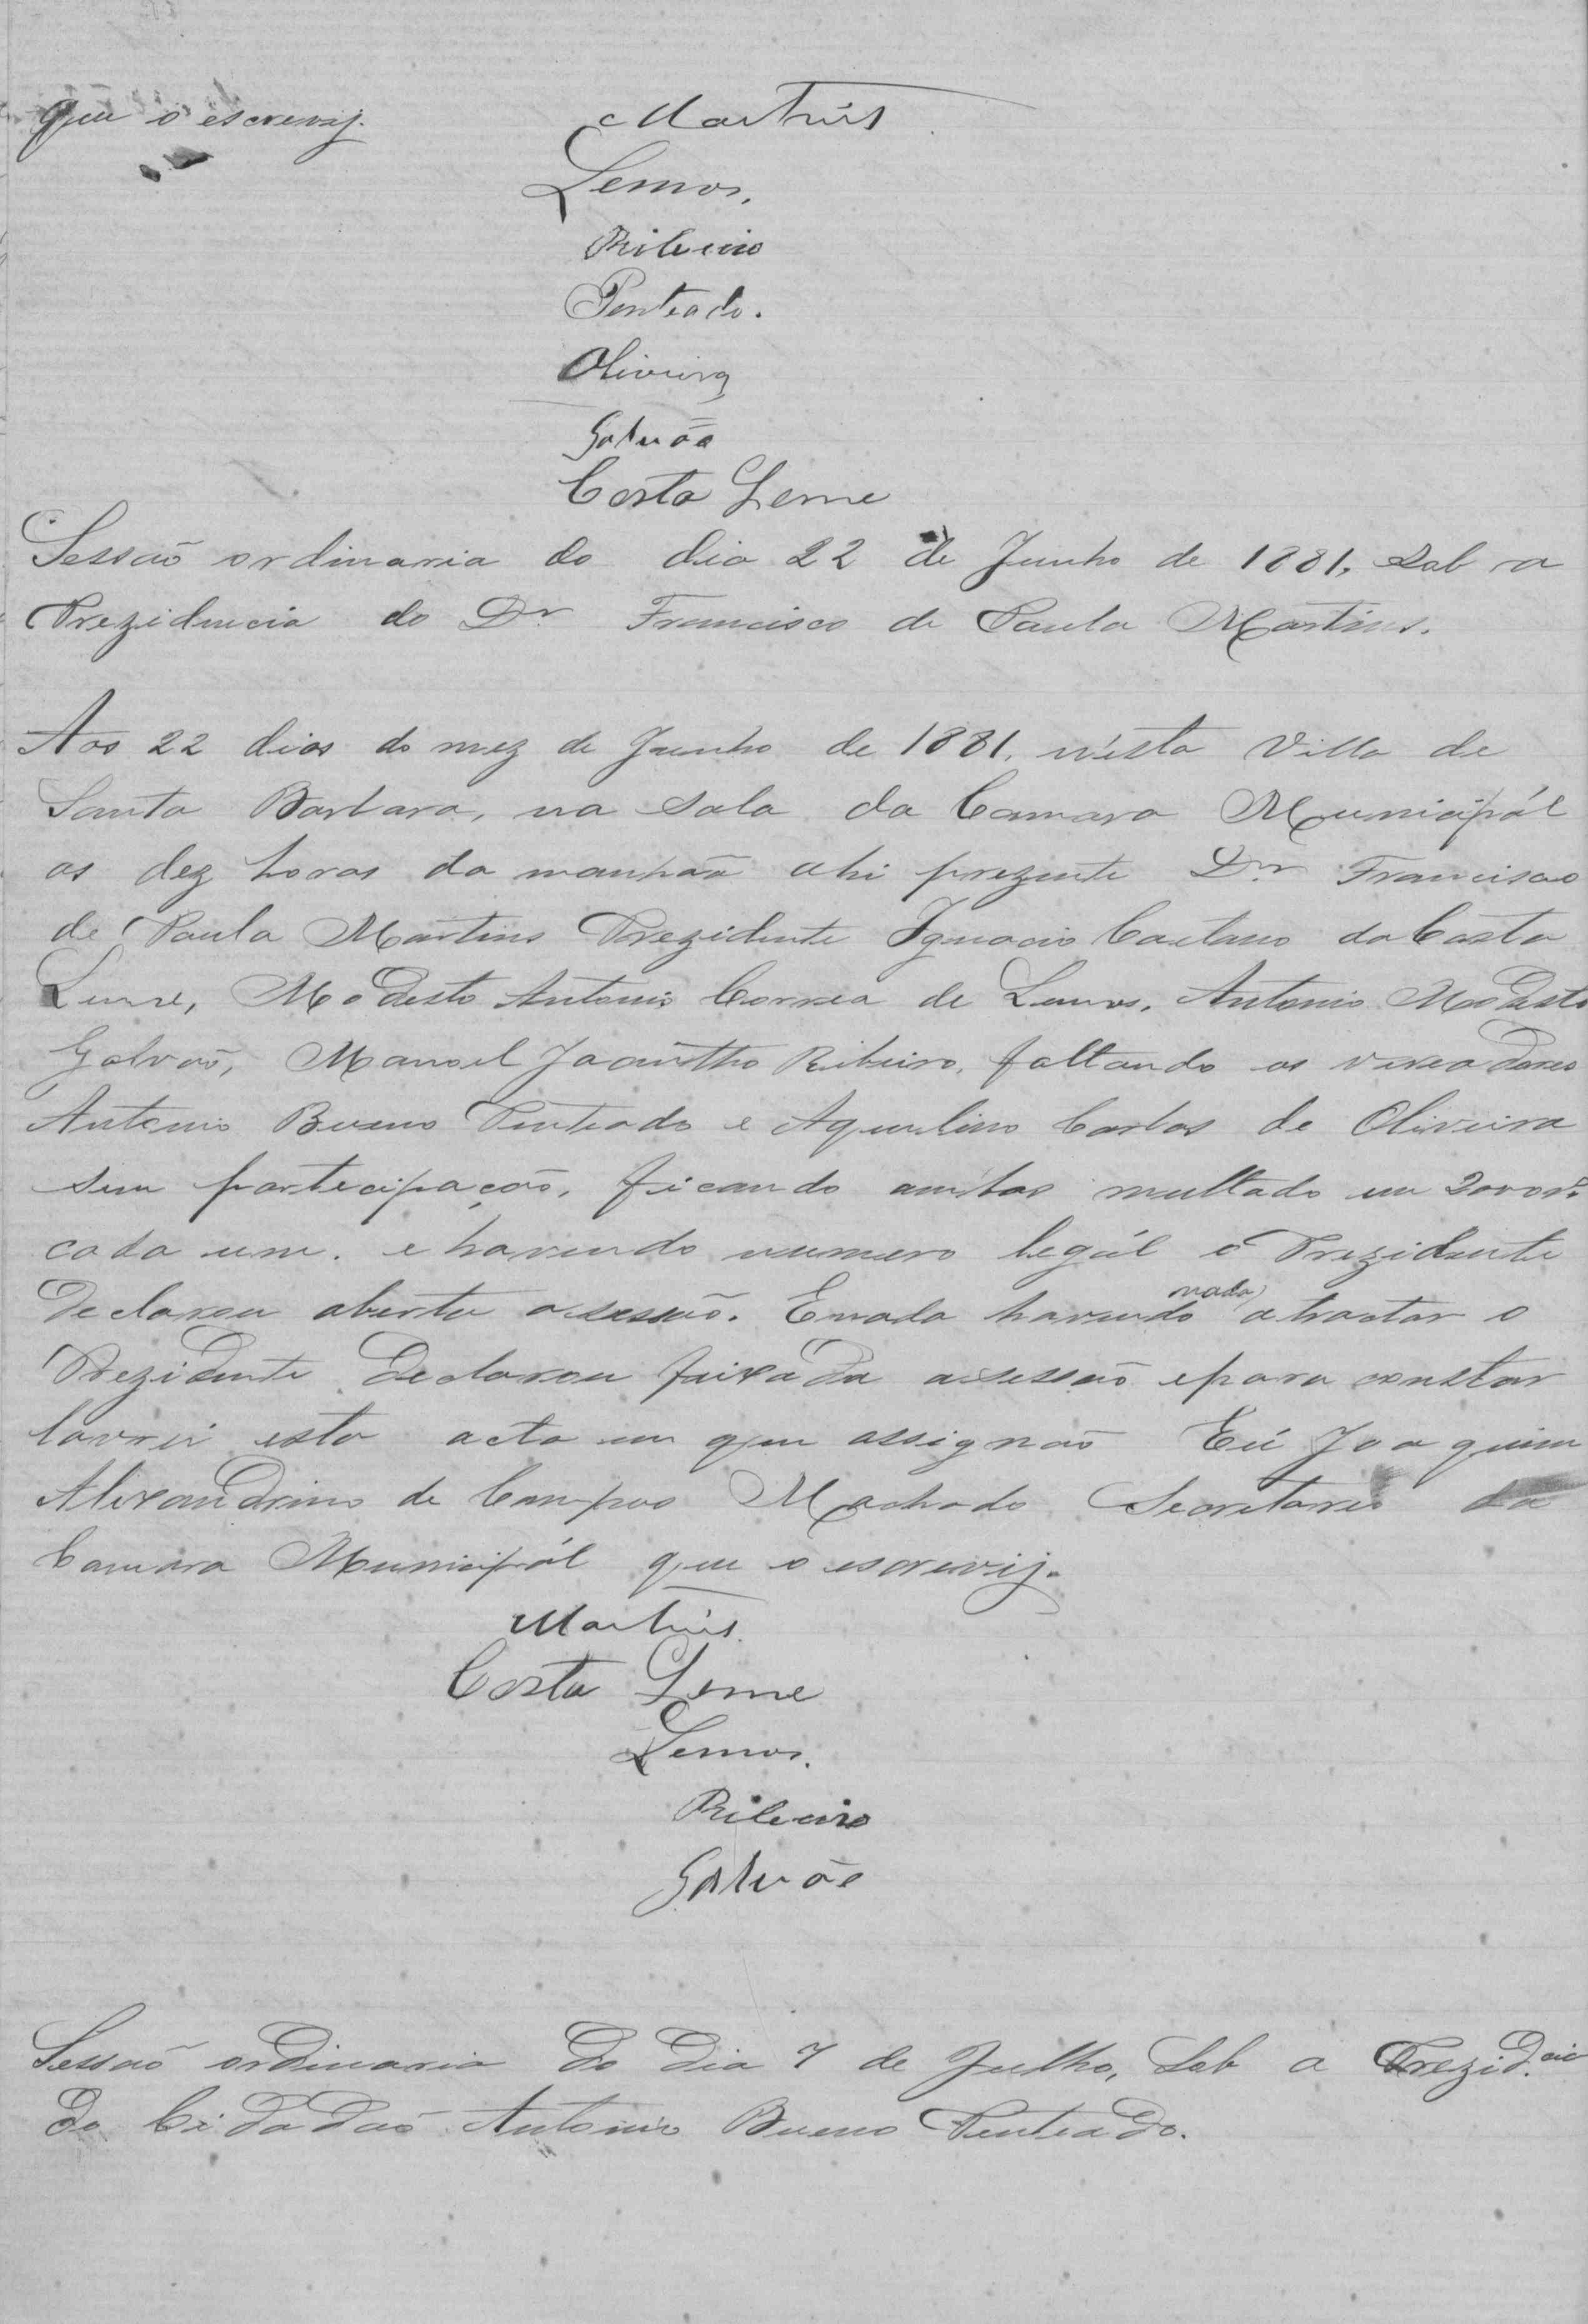 que o escrevij.
Martins
Lemos.
Ribeiro
Penteado.
Oliveira
Galvão
Costa Leme
Sessaõ ordinaria do dia 22 de Junho de 1881, Sob a
Prezidencia do Dr Francisco de Paula Martins.
Aos 22 dias do mez de Junho de 1881. n'esta Villa de
Santa Barbara, na sala da Camara Municipál
as dez horas da manhaã ahi prezente Dr. Francisco
de Paula Martins Prezidente Ignacio Caetano da Costa
Leme, Modesto Antonio Correa de Lemos, Antonio Modesto
Galvaõ, Manoel Jacintho Ribeiro, faltando os vereadores
Antonio Bueno Penteado e Aquilino Carlos de Oliveira
sem partecipaçaõ, ficando ambos multado em
cada um. e havendo numero legál o Prezidente
declarou aberta a sessaõ. E nada havendo nada a tractar o
Prezidente declarou feixada a sessaõ e para constar
lavrei esta acta em que assignaõ Eú Joaquim
Alixandrino de Campos Machado Secretario da
Camara Municipál que o escrevij.
Martins.
Costa Leme
Lemos.
Ribeiro
Galvão
Sessaõ ordinaria do dia 7 de Julho, Sob a Prezid.cia
do Cidadaõ Antonio Bueno Penteado.